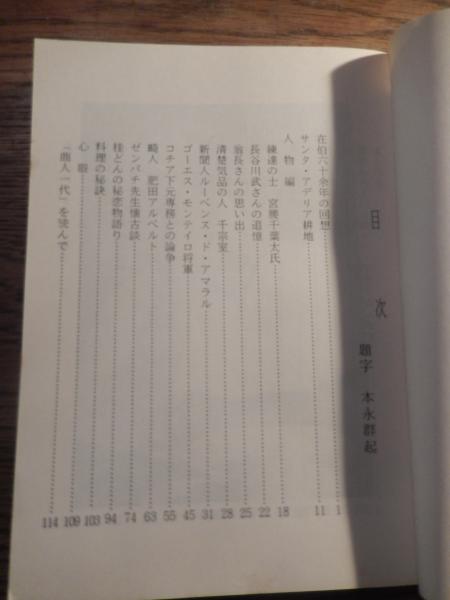 目次
題字 本永群起
在伯六十余年の回想 1
サンタ・アデリア耕地 11
人物編
練達の士 宮腰千葉太氏 18
長谷川武さんの追憶 22
翁長さんの思い出 25
清楚気品の人 千宗室 28
新聞人ルーベンス・ド・アマラル 31
ゴーエス・モンテイロ将軍 45
コチア下元専務との論争 55
畸人 肥田アルベルト 63
ゼンパチ先生懐古談 74
桂どんの秘恋物語り 94
料理の秘訣 103
心眼 109
「商人一代」を読んで 114